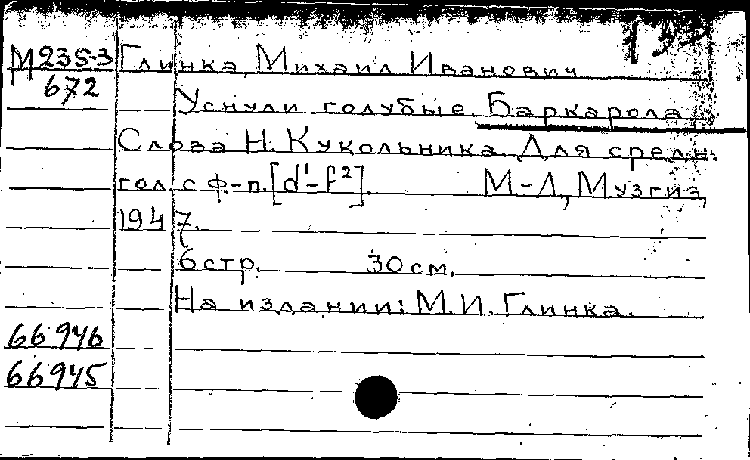 М235-3 Глинка, Михаил Иванович
672 Уснули голубые. Баркарола.
Слова Н. Кукольника. Для средн.
гол. с ф.-п. [d¹-f²]. М-Л, Музгиз,
1947.
6 стр. 30 см.
На издании: М. И. Глинка.
66946
66945